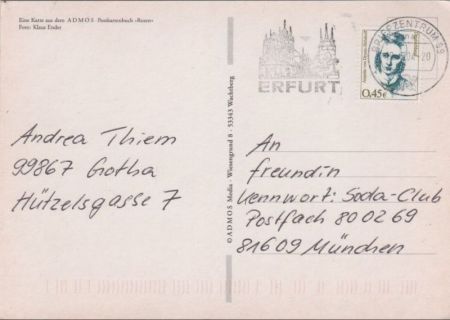 Eine Karte aus dem ADMOS - Postkartenbuch »Rosen«
Foto: Klaus Ender
BRIEFZENTRUM 99
ERFURT
0,45€
Andrea Thiem
99867 Gotha
Hützelsgasse 7
© ADMOS Media · Wiesengrund 8 · 53343 Wachtberg
An
freundin
Kennwort: Soda-Club
Postfach 80 02 69
81609 München